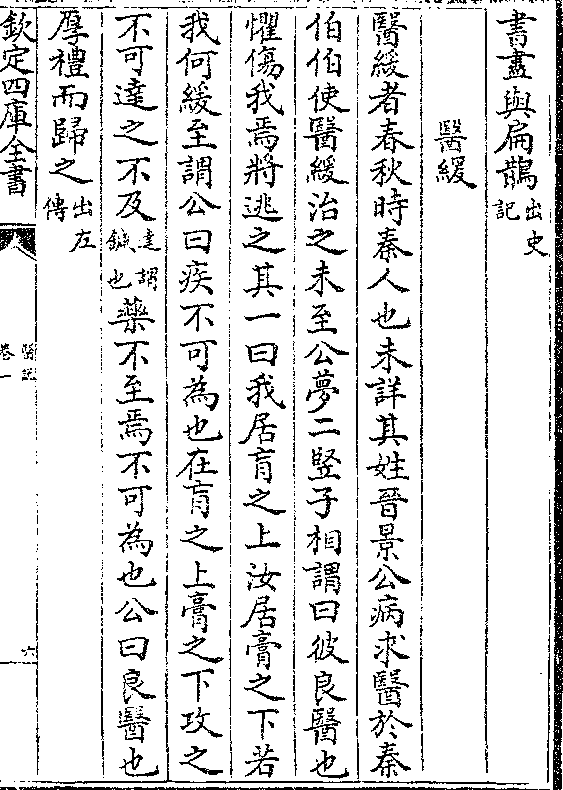 書盡與扁鵲出史記
醫緩
醫緩者春秋時秦人也未詳其姓晉景公病求醫於秦
伯伯使醫緩治之未至公夢二竪子相謂曰彼良醫也
懼傷我焉將逃之其一曰我居肓之上汝居膏之下若
我何緩至謂公曰疾不可為也在肓之上膏之下攻之
不可達之不及達謂鍼也藥不至焉不可為也公曰良醫也
厚禮而歸之出左傳
欽定四庫全書
醫説
卷一
六